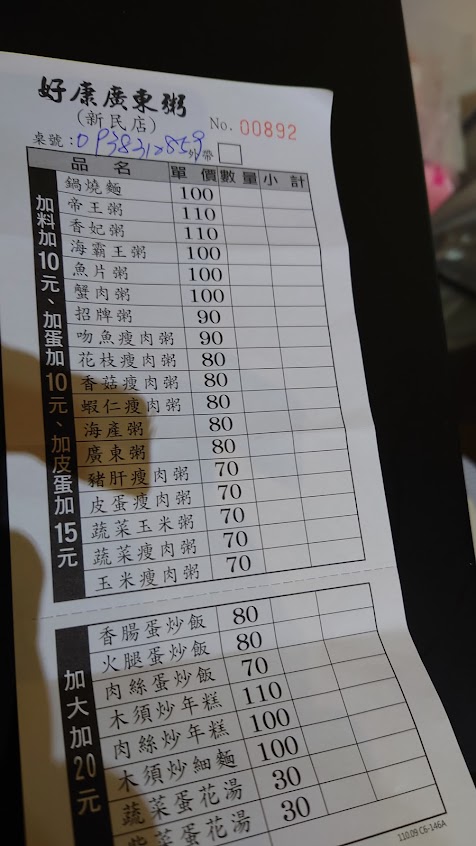 好康廣東粥
(新民店)
No. 00892
桌號：
外帶
品名 單價 數量 小計
加料加10元、加蛋加10元、加皮蛋加15元
鍋燒麵 100
帝王粥 110
香妃粥 110
海霸王粥 100
魚片粥 100
蟹肉粥 100
招牌粥 90
吻魚瘦肉粥 90
花枝瘦肉粥 80
香菇瘦肉粥 80
蝦仁瘦肉粥 80
海產粥 80
廣東粥 80
豬肝瘦肉粥 70
皮蛋瘦肉粥 70
蔬菜玉米粥 70
蔬菜瘦肉粥 70
玉米瘦肉粥 70
加大加20元
香腸蛋炒飯 80
火腿蛋炒飯 80
肉絲蛋炒飯 70
木須炒年糕 110
肉絲炒年糕 100
木須炒細麵 100
蔬菜蛋花湯 30
紫菜蛋花湯 30
110.09 C6-146A